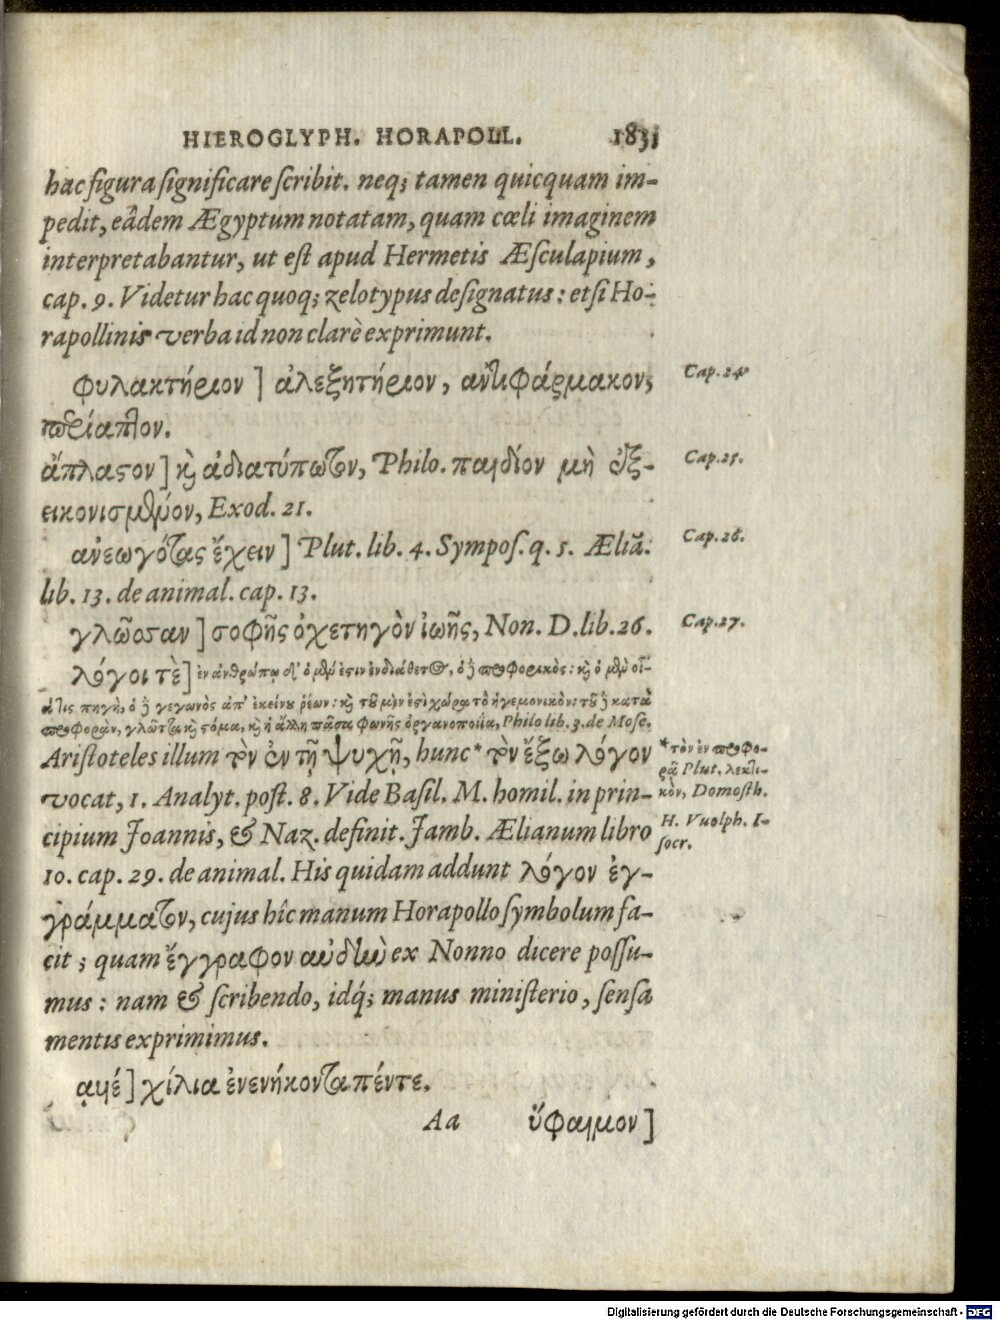 HIEROGLYPH. HORAPOLL. 183
hac figura ſignificare ſcribit. neq; tamen quicquam im-
pedit, eâdem Ægyptum notatam, quam cœli imaginem
interpretabantur, ut eſt apud Hermetis Æſculapium,
cap. 9. Videtur hac quoq; zelotypus deſignatus: etſi Ho-
rapollinis verba id non clarè exprimunt.
φυλακτήριον] ἀλεξητήριον, ἀντιφάρμακον, Cap. 24.
περίαπτον.
ἄπλαςον] κ̀ ἀδιατύπωτον, Philo. παιδίον μὴ ἐξ- Cap. 25.
εικονισμένον, Exod. 21.
ἀνεωγότας ἔχειν] Plut. lib. 4. Sympoſ. q. 5. Æliā. Cap. 26.
lib. 13. de animal. cap. 13.
γλῶσσαν] σοφῆς ὀχετηγὸν ἰωῆς, Non. D. lib. 26. Cap. 27.
λόγοι τὲ] ἐν ἀνθρώπῳ δ' ὁ μὲν ἐςιν ἐνδιάθετος, ὁ δὲ προφορικὸς: κ̀ ὁ μὲν οἷ-
ά τις πηγὴ, ὁ δὲ γεγωνὸς ἀπ' ἐκείνου ῥέων: κ̀ τοῦ μὲν ἐςὶ χώρα τὸ ἡγεμονικὸν: τοῦ δὲ κατὰ
προφορὰν, γλῶττα κ̀ ςόμα, κ̀ ἡ ἄλλη πᾶσα φωνῆς ὀργανοποιΐα, Philo lib. 3. de Moſe.
Ariſtoteles illum τὸν ἐν τῇ ψυχῇ, hunc* τὸν ἔξω λόγον
vocat, 1. Analyt. poſt. 8. Vide Baſil. M. homil. in prin-
cipium Joannis, & Naz. definit. Jamb. Ælianum libro
10. cap. 29. de animal. His quidam addunt λόγον ἐγ-
γράμματον, cujus hîc manum Horapollo ſymbolum fa-
cit; quam ἔγγραφον αὐδὴν ex Nonno dicere poſſu-
mus: nam & ſcribendo, idq́; manus miniſterio, ſenſa
mentis exprimimus.
* τὸν ἐν προφο-
ρᾷ Plut. λεκτι-
κὸν, Domoſth.
H. Vuolph. I-
ſocr.
χίλια ἐνενήκοντα πέντε.
Aa ὕφαιμον]
Digitalisierung gefördert durch die Deutsche Forschungsgemeinschaft - DFG